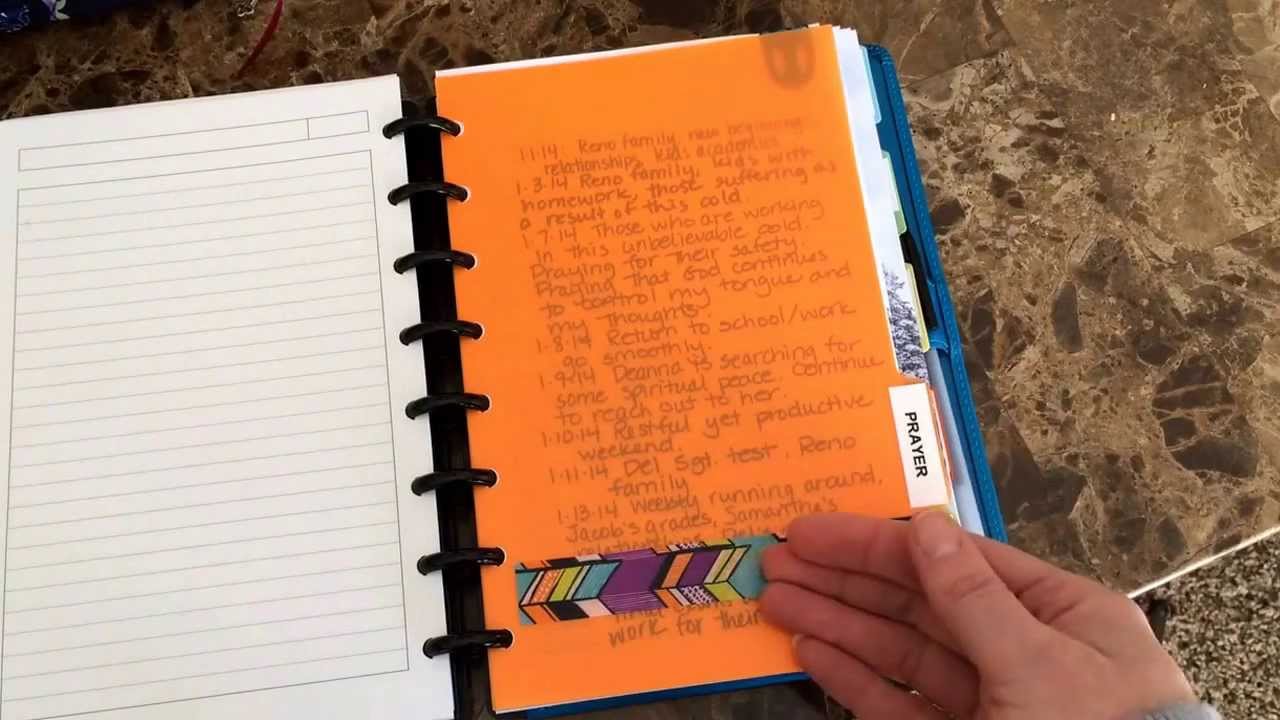 1.1.14: Reno family, new beginning
relationships, kids academics
1.3.14 Reno family, kids with
homework, those suffering as
a result of this cold.
1.7.14 Those who are working
in this unbelievable cold.
Praying for their safety.
Praying that God continues
to control my tongue and
my thoughts.
1.8.14 Return to school/work
go smoothly.
1.9.14 Deanna is searching for
some spiritual peace. Continue
to reach out to her.
1.10.14 Restful yet productive
weekend.
1.11.14 Del Sgt. test, Reno
family
1.13.14 Weekly running around,
Jacob's grades, Samantha's
work for their
PRAYER